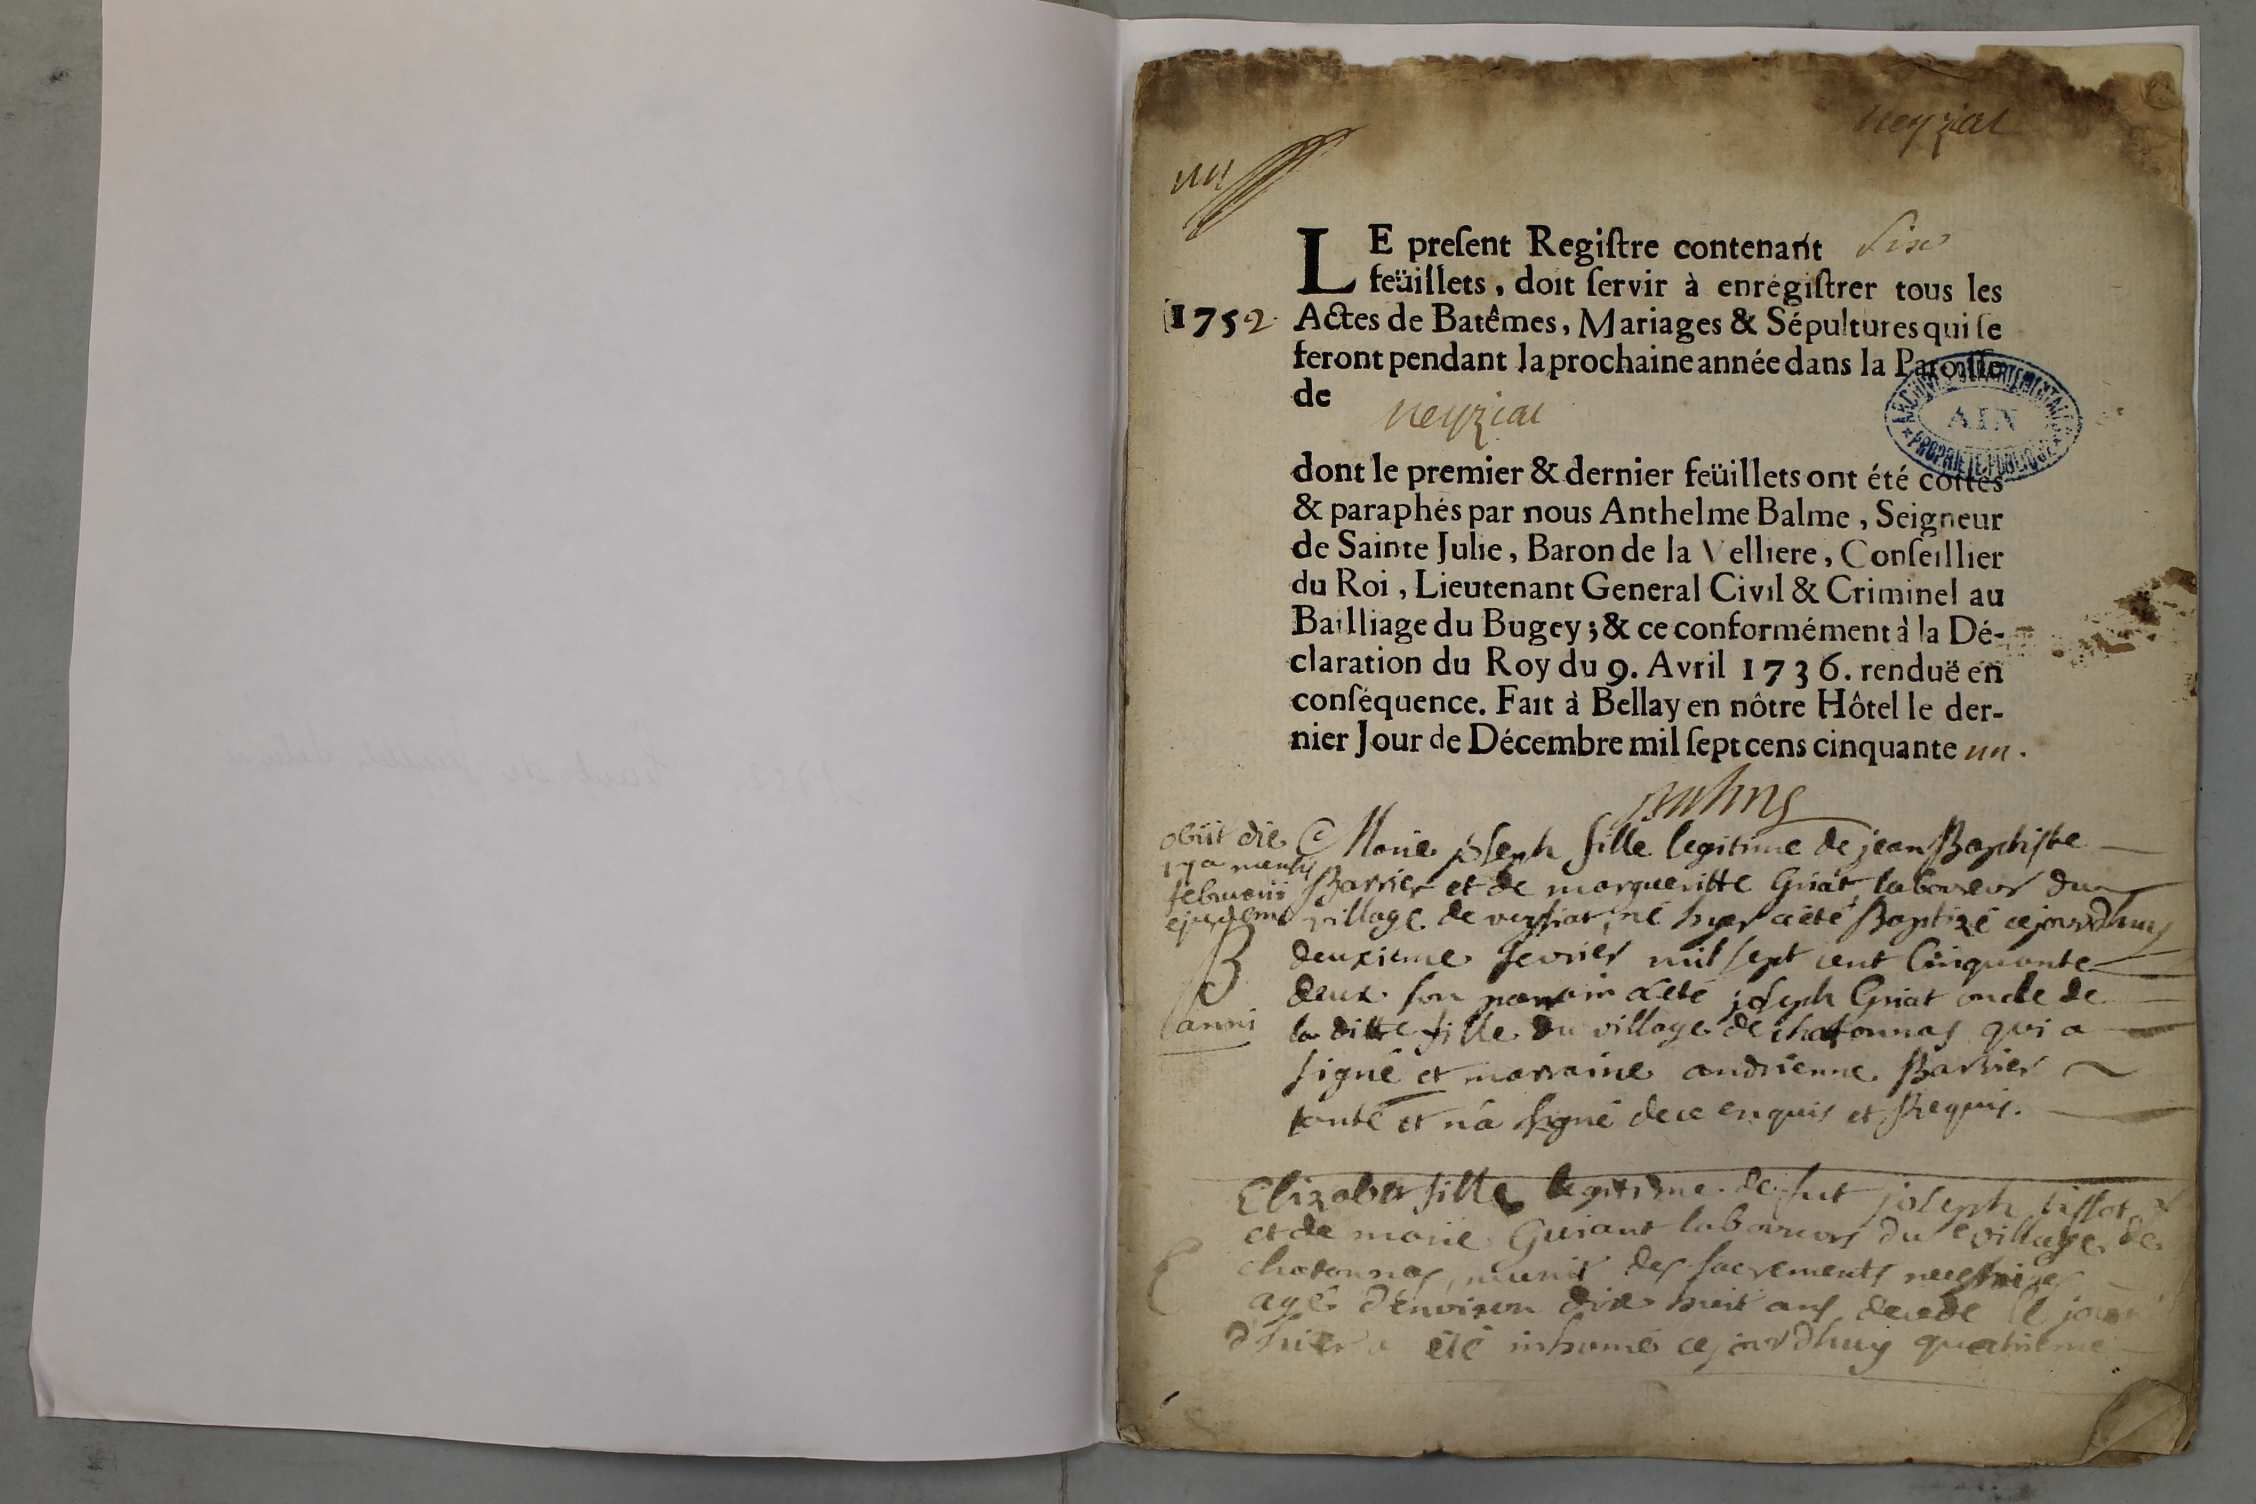 neyziat
un
LE preſent Regiſtre contenant six
feüillets, doit ſervir à enrégiſtrer tous les
1752. Actes de Batêmes, Mariages & Sépultures qui ſe
feront pendant la prochaine année dans la Paroiſſe
de neyziat
ARCHIVES DEPARTEMENTALES
AIN
PROPRIETE PUBLIQUE
dont le premier & dernier feüillets ont été cottés
& paraphés par nous Anthelme Balme, Seigneur
de Sainte Julie, Baron de la Velliere, Conſeillier
du Roi, Lieutenant General Civil & Criminel au
Bailliage du Bugey; & ce conformément à la Dé-
claration du Roy du 9. Avril 1736. renduë en
conſéquence. Fait à Bellay en nôtre Hôtel le der-
nier Jour de Décembre mil ſept cens cinquante un.
Balme
obiit die
17a mensis
februarii
ejusdem
B
anni
Marie joseph fille legitime de jean Baptiste
Barrier et de margueritte Griat laboureur du
village de veyziat, né hyer a été Baptizé cejourdhuy
deuxieme fevrier mil sept cent Cinquante
deux son parrain a été joseph Griat oncle de
la ditte fille du village de chatonnas qui a
signé et marraine andrienne Barrier
tante et n'a signé de ce enquis et Requis.
Elizabet fille legitime de fut joseph tissot
et de marie Guiant laboureurs du village de
chatonnas, munit des sacrements necessaires
agé d'environ dix huit ans decede le jour
d'hier a été inhumé cejourdhuy quatrieme